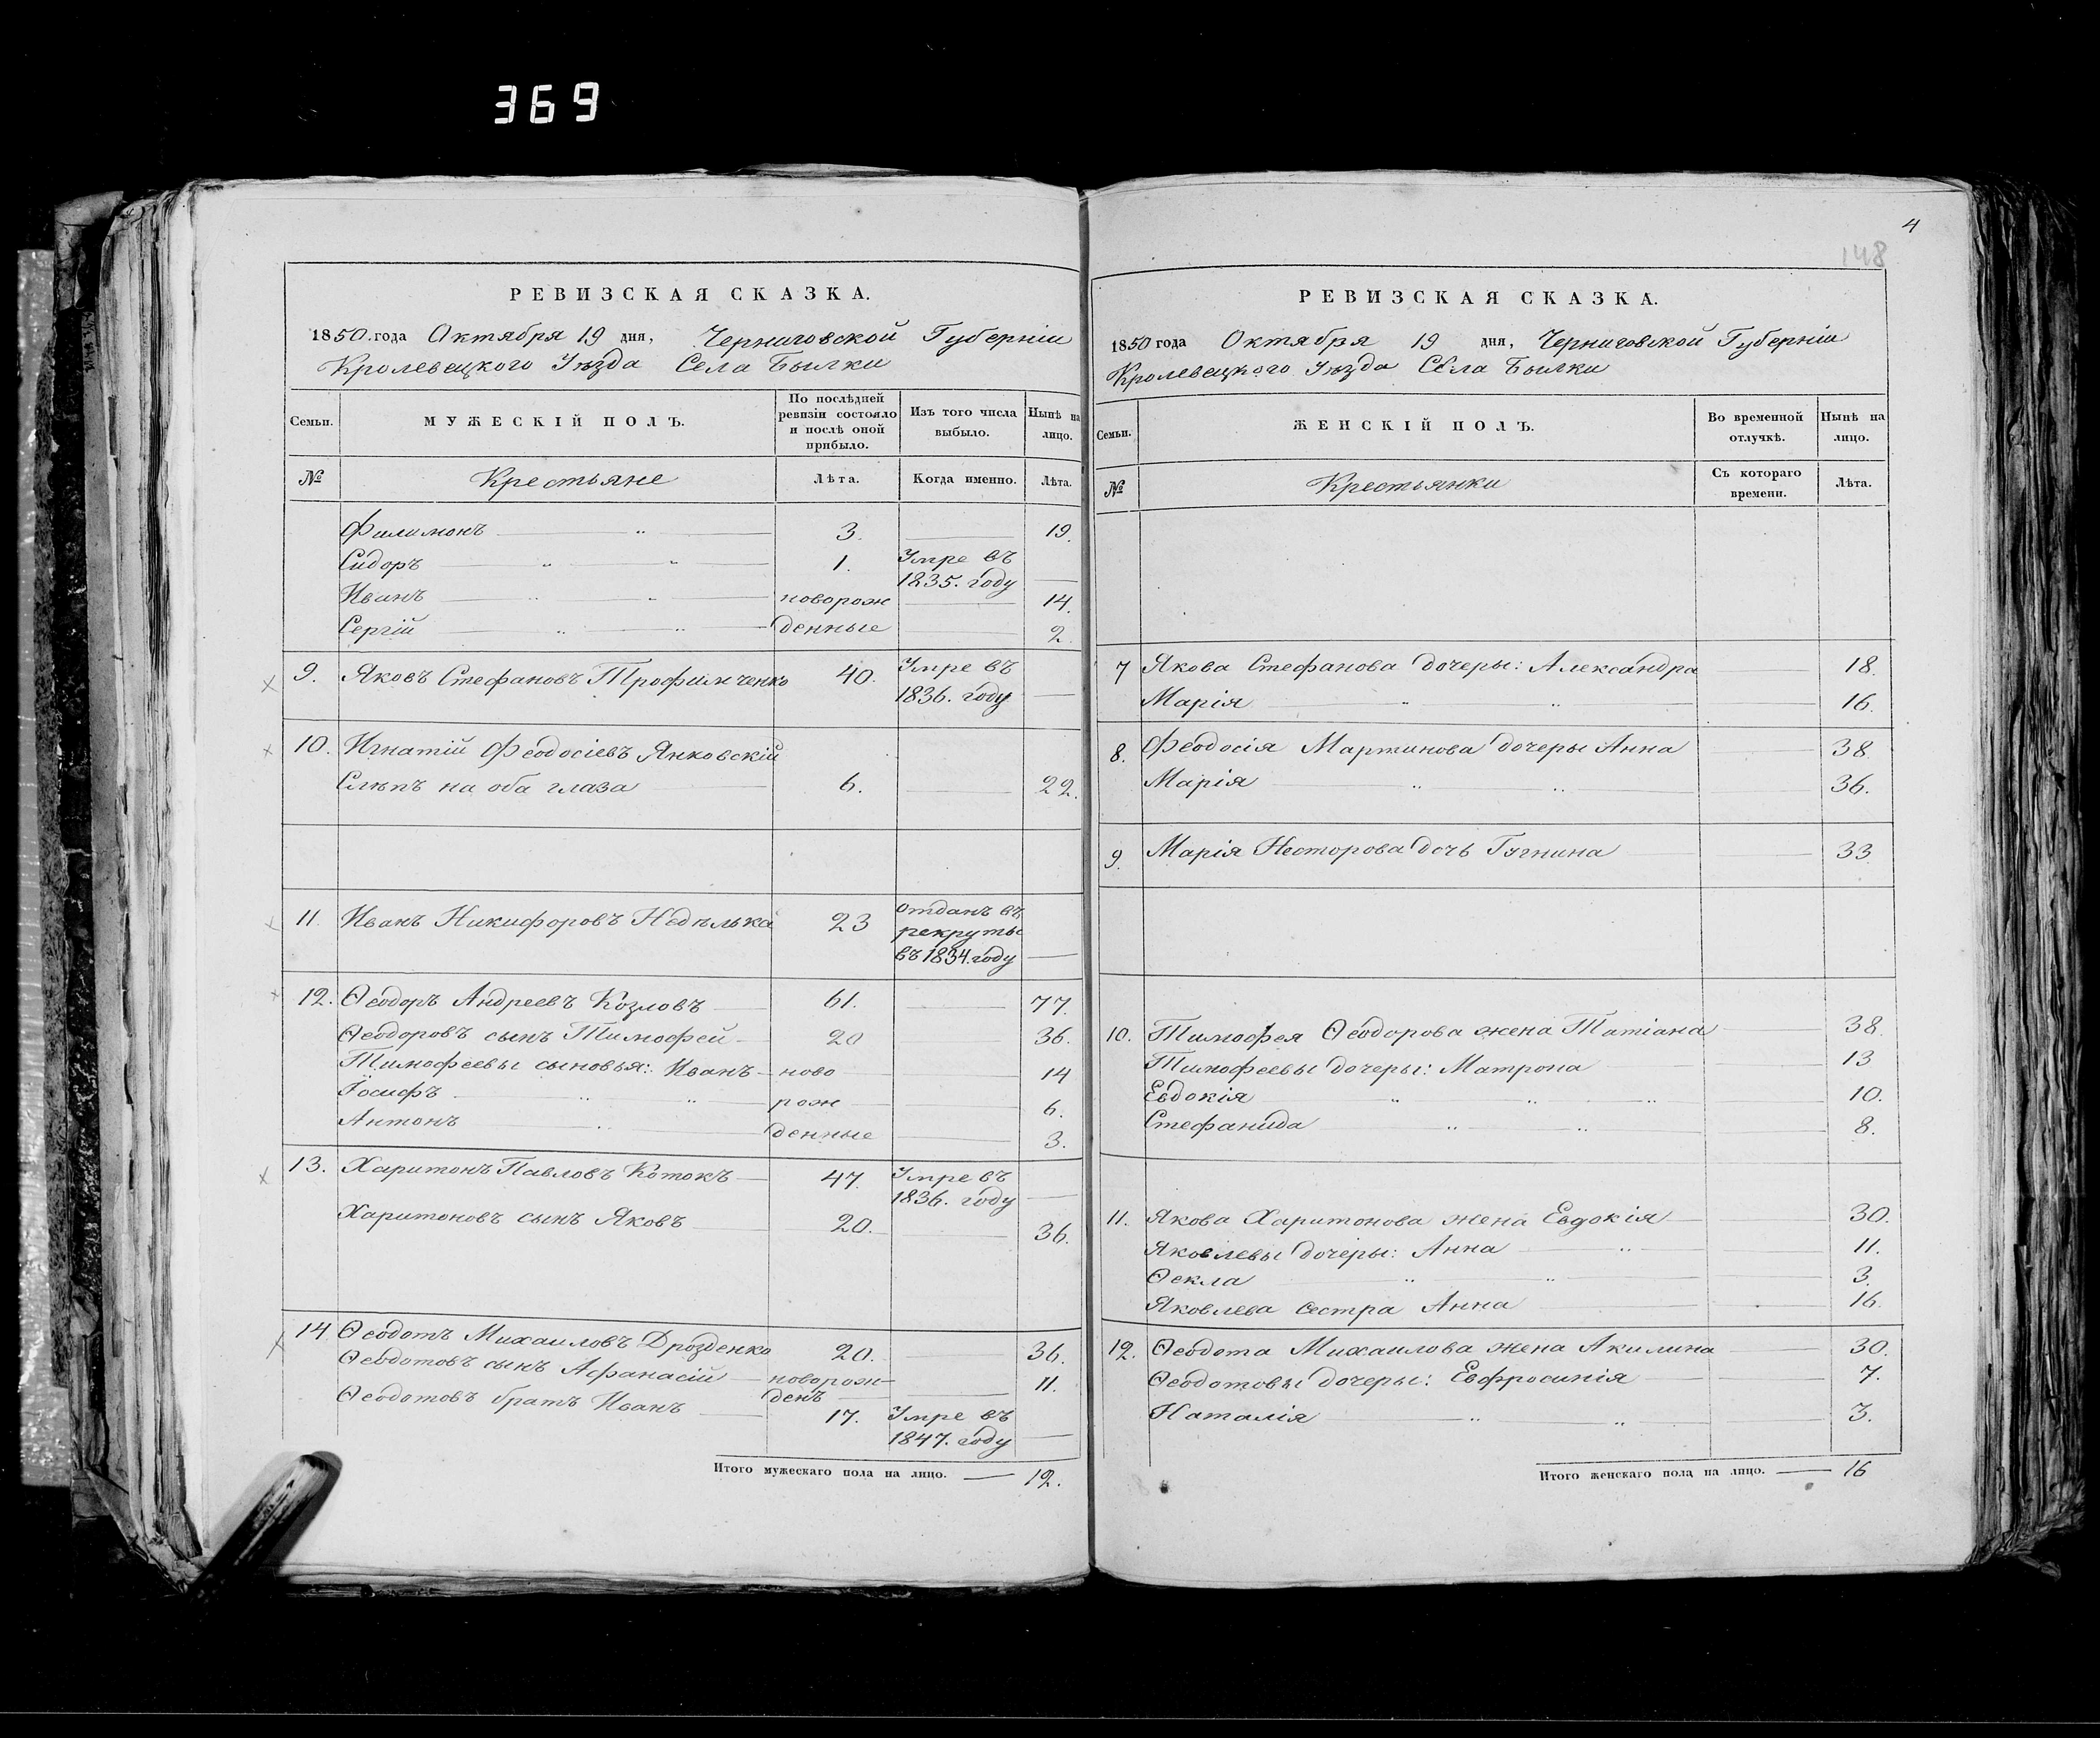 369
РЕВИЗСКАЯ СКАЗКА.
1850. года Октября 19 дня, Черниговской Губерніи
Кролевецкого Уѣзда Села Былки
Семьи.
МУЖЕСКІЙ ПОЛЪ.
По послѣдней ревизіи состояло и послѣ оной прибыло.
Изъ того числа выбыло.
Нынѣ на лицо.
№ Крестьяне Лѣта. Когда именно. Лѣта.
Филимонъ — " — 3. — 19.
Сидоръ — " — " — 1. Умре въ
1835. году —
Иванъ — " — " — новорож — 14.
Сергій — " — " — денные — 2.
9. Яковъ Стефановъ Трофимченко 40. Умре въ
1836. году —
10. Игнатій Феодосіевъ Янковскій
Слѣпъ на оба глаза — 6. — 22.
11. Иванъ Никифоровъ Недѣлька 23 отданъ въ
рекруты
въ 1834. году —
12. Ѳеодоръ Андреевъ Козловъ — 61. — 77.
Ѳеодоровъ сынъ Тимофей — 20 — 36.
Тимофеевы сыновья: Иванъ — ново — 14
Іосифъ — " — " — рож — 6.
Антонъ — " — денные — 3.
13. Харитонъ Павловъ Котокъ — 47. Умре въ
1836. году —
Харитоновъ сынъ Яковъ — 20. — 36.
14 Ѳеодотъ Михаиловъ Дрозденко 20. — 36.
Ѳеодотовъ сынъ Афанасій — новорож-
денъ — 11.
Ѳеодотовъ братъ Иванъ — 17. Умре въ
1847. году —
Итого мужескаго пола на лицо. — 12.
4
148
РЕВИЗСКАЯ СКАЗКА.
1850 года Октября 19 дня, Черниговской Губерніи
Кролевецкого Уѣзда Села Былки
Семьи.
ЖЕНСКІЙ ПОЛЪ.
Во временной отлучкѣ.
Нынѣ на лицо.
№ Крестьянки Съ котораго времени. Лѣта.
7 Якова Стефанова дочеры: Александра — 18.
Марія — " — " — 16.
8. Феодосія Мартинова дочеры Анна — 38
Марія — " — " — 36.
9. Марія Несторова дочь — 33
10. Тимофея Ѳеодорова жена Татіана — 38.
Тимофеевы дочеры: Матрона — 13
Евдокія — " — " — " — 10.
Стефанида — " — " — 8.
11. Якова Харитонова жена Евдокія — 30.
Яковлевы дочеры: Анна — " — 11.
Ѳекла — " — " — 3.
Яковлева сестра Анна — 16.
12. Ѳеодота Михаилова жена Акилина — 30.
Ѳеодотовы дочеры: Евфросинія — 7.
Наталія — " — " — 3.
Итого женскаго пола на лицо. — 16